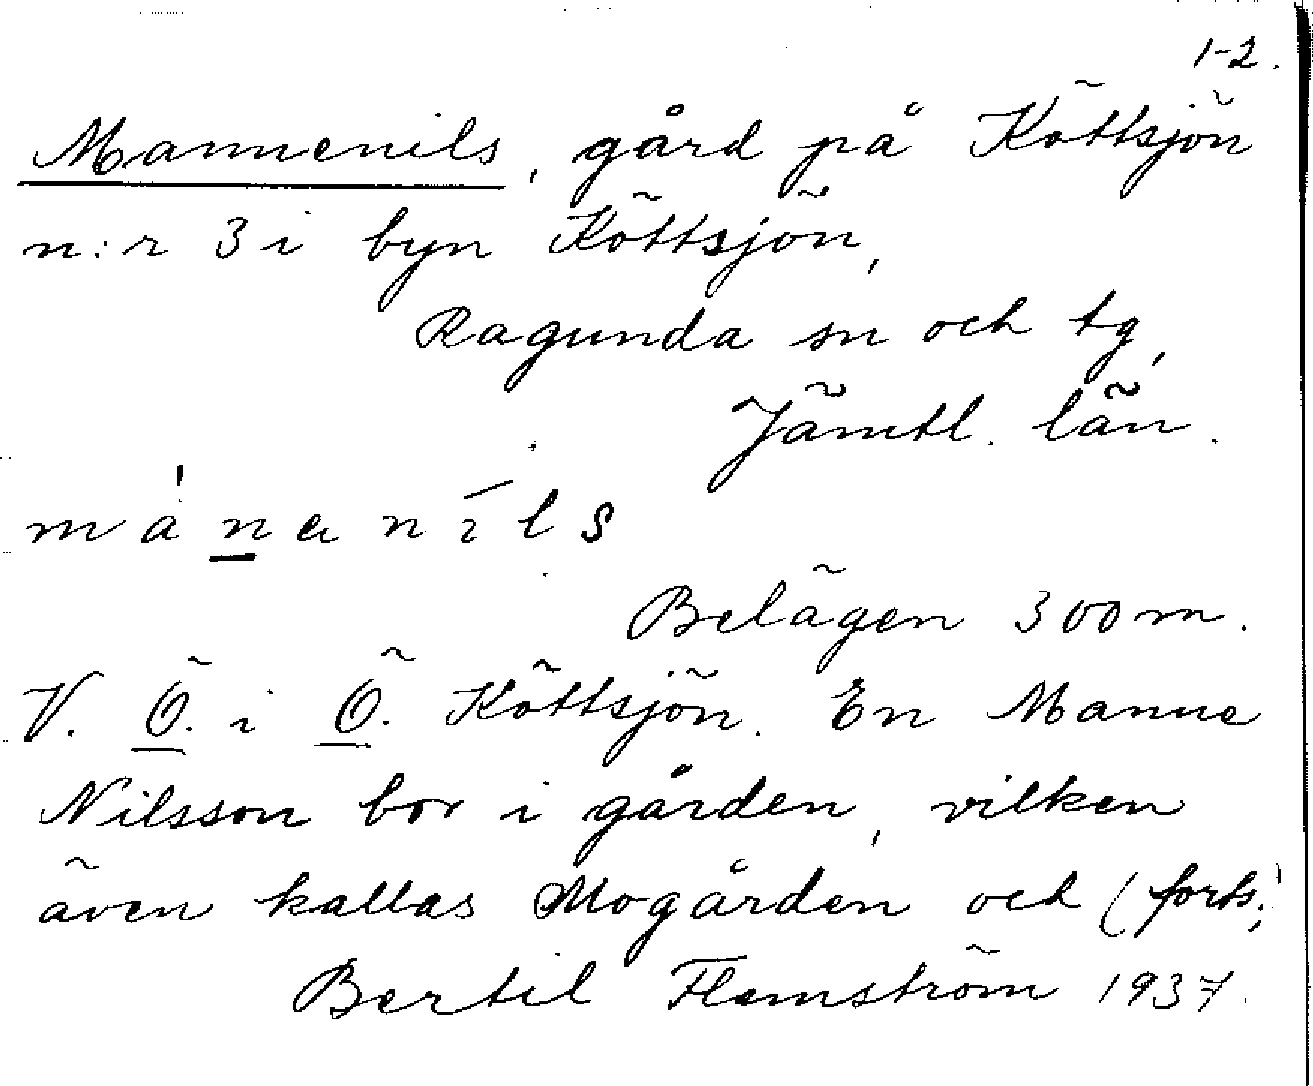 1-2.
Mannenils, gård på Köttsjön
n:r 3 i byn Köttsjön,
Ragunda sn och tg,
Jämtl. län.
mánanìls
Belägen 300 m.
V. Ö. i Ö. Köttsjön. En Manne
Nilsson bor i gården, vilken
även kallas Mogården och (forts.)
Bertil Flemström 1937.